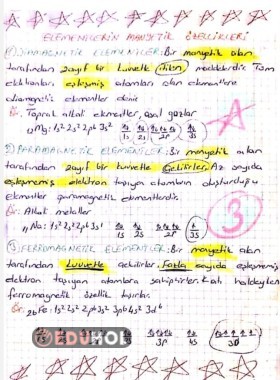 ELEMENTLERİN MANYETİK ÖZELLİKLERİ
1) DİAMAGNETİK ELEMENTLER: Bir manyetik alan
tarafından zayıf bir kuvvetle itilen maddelerdir. Tüm
elektronları eşleşmiş atomları olan elementlere
diamagnetik elementler denir
Ör: Toprak alkali elementler, asal gazlar
12Mg: 1s2 2s2 2p6 3s2
1s 2s 2p 3s
2) PARAMAGNETİK ELEMENTLER: Bir manyetik alan
tarafından zayıf bir kuvvetle çekilirler. Az sayıda
eşleşmemiş elektron taşıyan atomların oluşturduğu
elementler paramagnetik elementlerdir.
Ör: Alkali metaller
11Na: 1s2 2s2 2p6 3s1
1s 2s 2p 3s
3
3) FERROMAGNETİK ELEMENTLER: Bir manyetik alan
tarafından kuvvetle çekilirler. Fazla sayıda eşleşmemiş
elektron taşıyan atomlara sahiptirler. Katı haldeyken
ferromagnetik özellik taşırlar.
Ör: 26Fe: 1s2 2s2 2p6 3s2 3p6 4s2 3d6
3p 4s 3d
EDUHOL